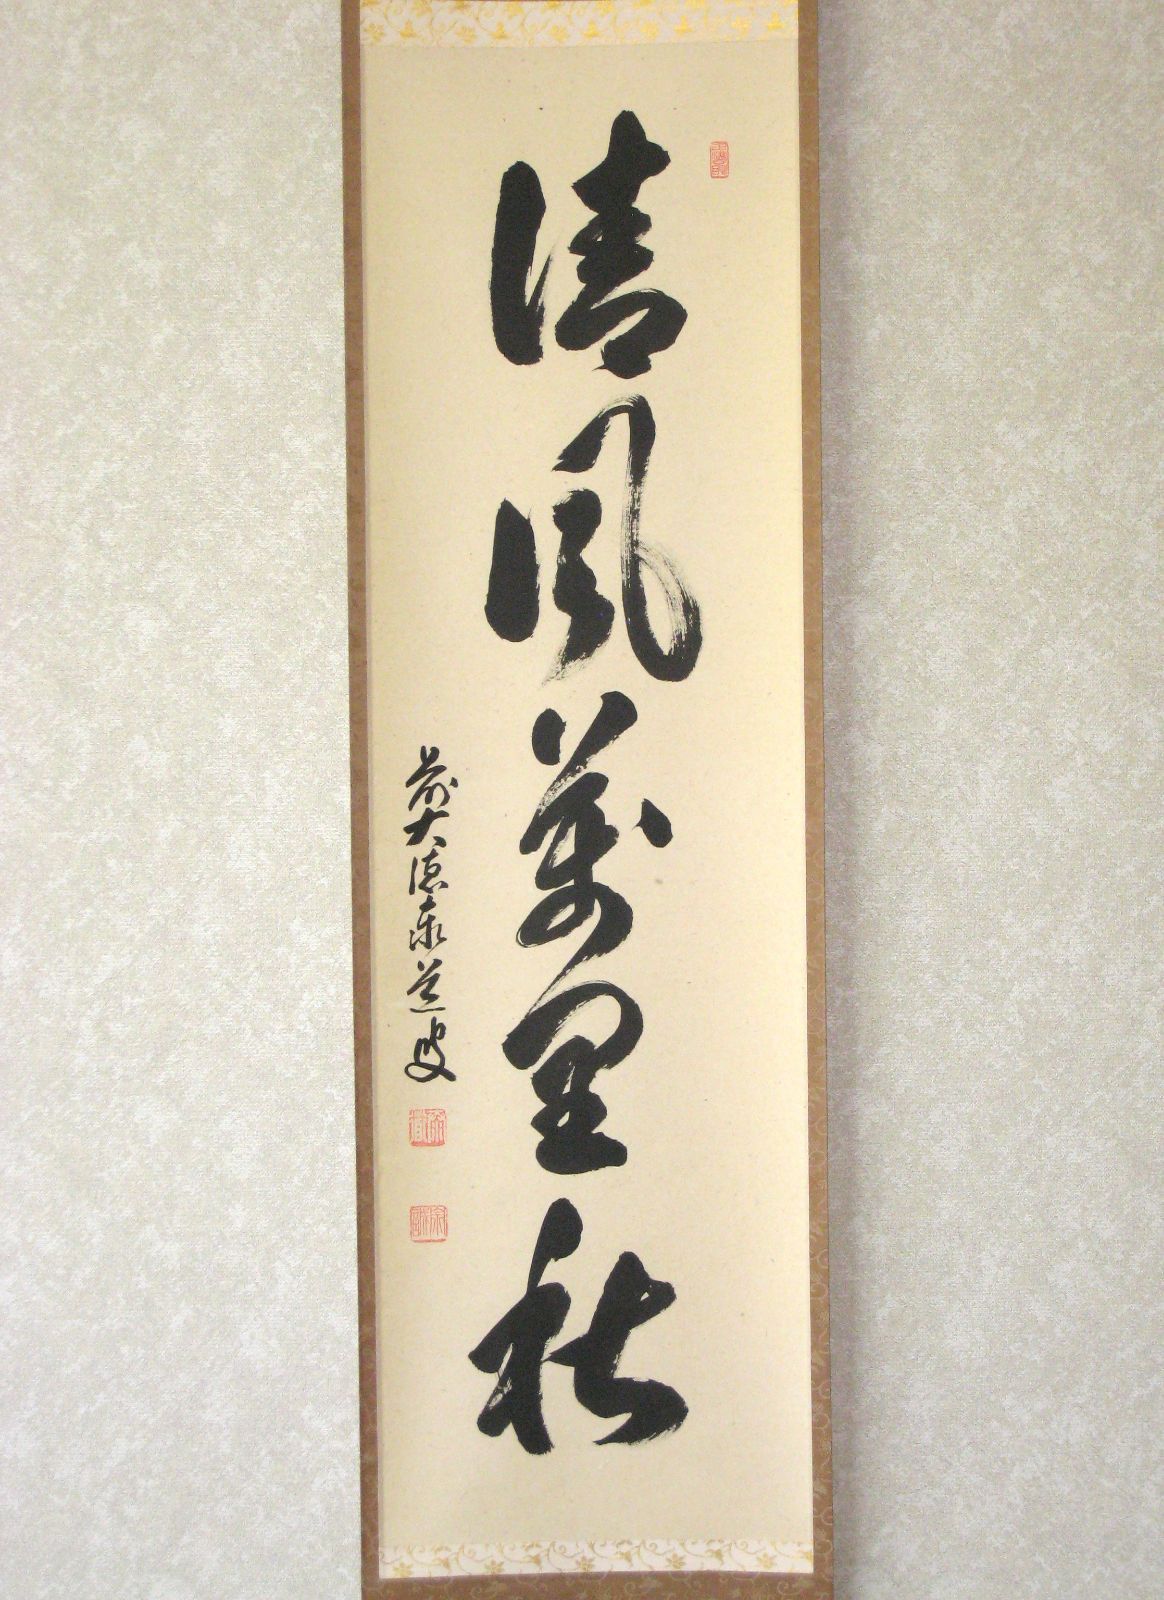 清風萬里秋
前大徳泰道叟